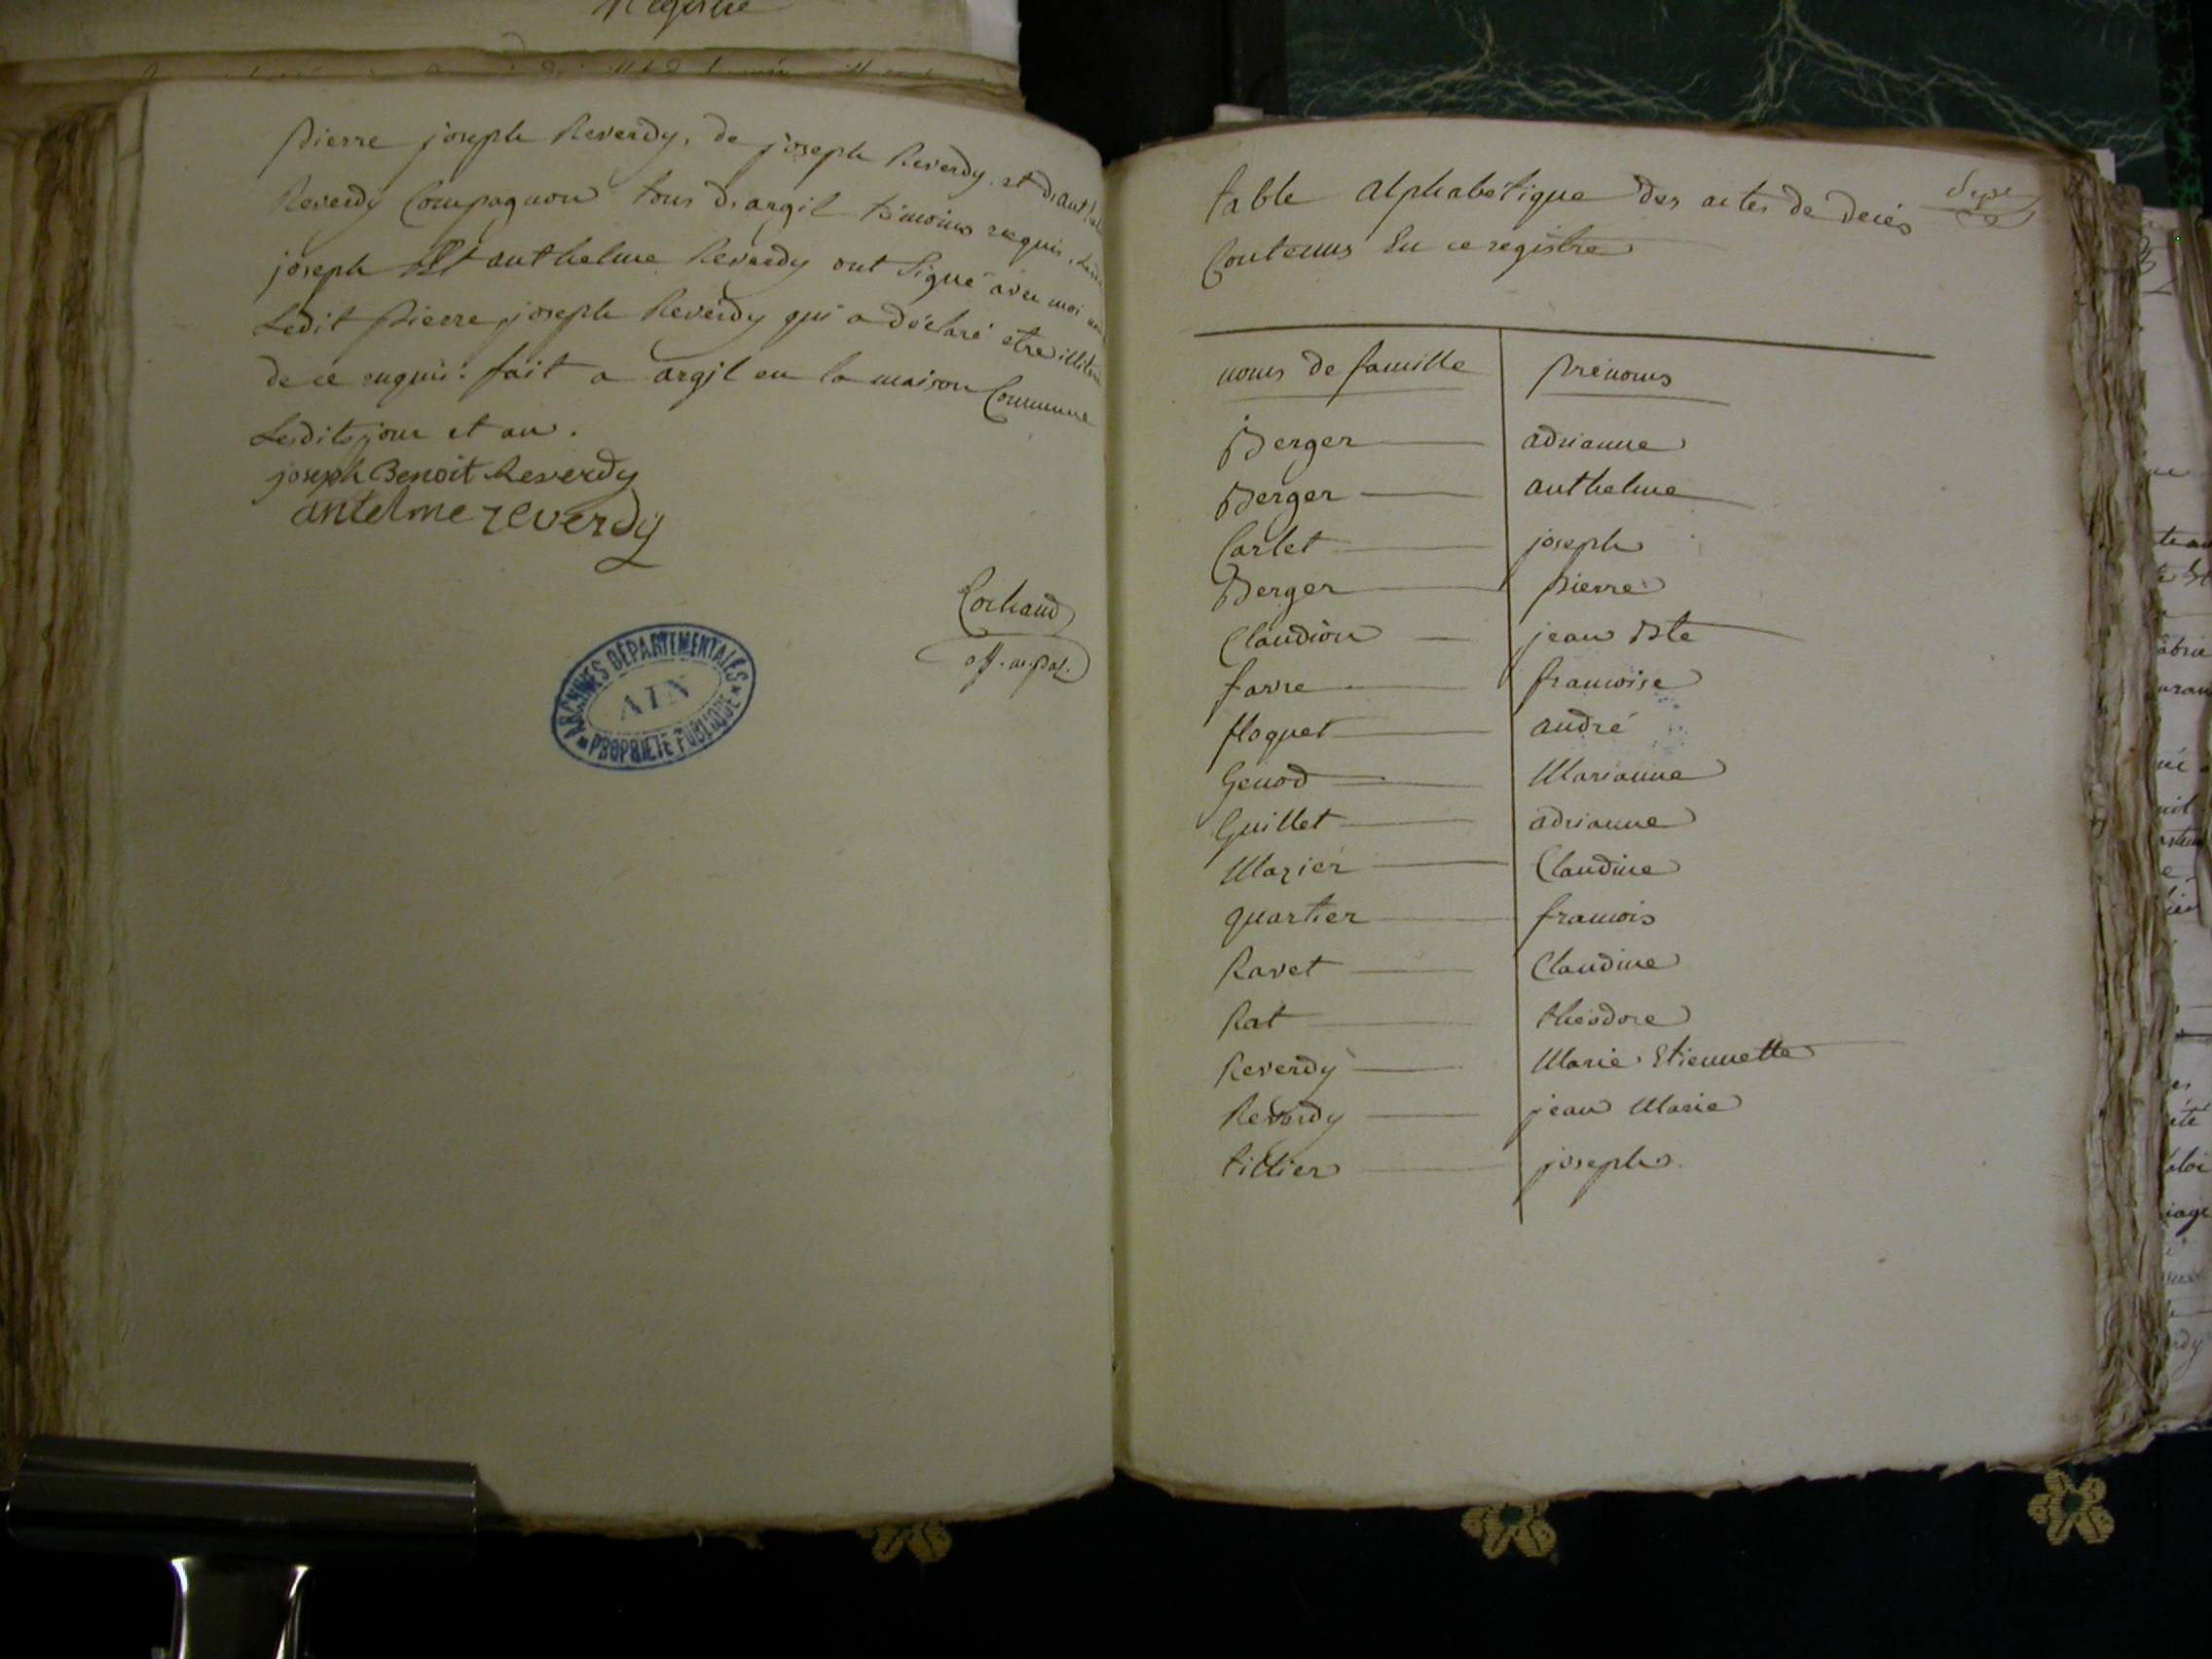 Registre
pierre joseph Reverdy, de joseph Reverdy et d'anthel
Reverdy Compagnon tous d'argil témoins requis,
joseph Bt anthelme Reverdy ont signé avec moi
Ledit pierre joseph Reverdy qui a déclaré etre illitere
de ce enquis. fait a argil en la maison Commune
Lesdits jour et an.
joseph Benoit Reverdy
antelme reverdy
Cochand
off. m.pal.
ARCHIVES DÉPARTEMENTALES
AIN
PROPRIÉTÉ PUBLIQUE
table alphabetique des actes de decés
Contenus En ce registre
noms de famille prénoms
Berger adrianne
Berger anthelme
Carlet joseph
Berger pierre
Claudion jean Bte
favre francoise
floquet andré
Genod Marianne
Guillet adrianne
Mazier Claudine
quartier francois
Ravet Claudine
Rat théodore
Reverdy Marie Etiennette
Reverdy jean Marie
tillier joseph